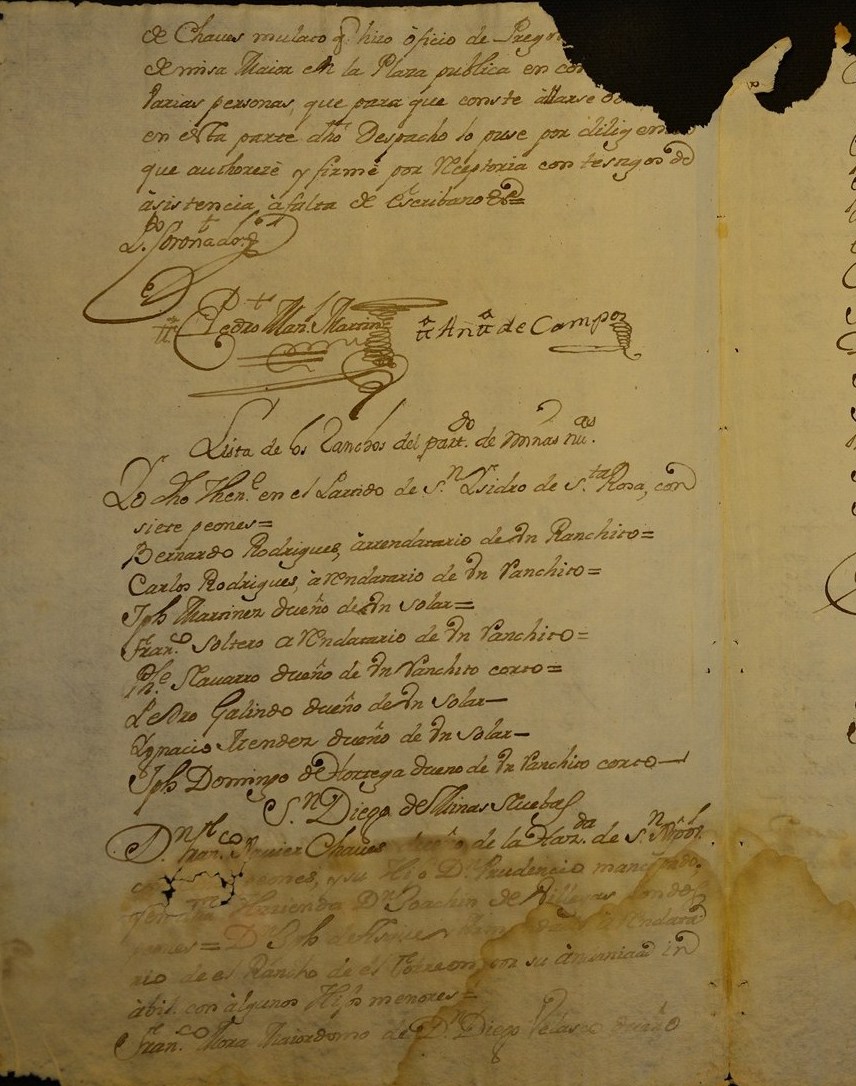 de Chaues mulato q̃ hizo òficio de Pregon
de misa Maior en la Plaza publica en con
Varias personas, que para que conste àllarse
en esta parte dho Despacho lo puse por dilig en
que authorizè y firmè por Rceptoria con testigos de
àsistencia, à falta de escribano
Coronado
Pedro Man.l Martin
Ant.o de Campos
Lista de los Ranchos del part.do de minas nu.as
Yo dho Then.e en el Partido de S.n Ysidro de S.ta Rosa, con
siete peones=
Bernardo Rodrigues, àrrendatario de Vn Ranchito=
Carlos Rodrigues, àRendatario de Vn Ranchito=
Jph Martinez dueño de Vn solar=
Fran.co Soltero aRendatario de Vn Ranchito=
Ph.e Nauarro dueño de Vn Ranchito corto=
Pedro Galindo dueño de Vn solar-
Ygnacio Mendez dueño de Vn solar-
Jph Domingo de Hortega dueno de Vn Ranchito corto-
S.n Diego de Minas Nuebas
D.n Fran.co Xauier Chaues dueño de la Haz.da de S.n
peones, y su Hijo D.n Prudencio
Hazienda D.n Joachin de Villegas con dos
peones= D.n Jph de
rio de el Rancho de el Torreon, por su àncianidad in
àbil con àlgunos Hijos menores=
Fran.co Mora Maiordomo de D.n Diego Velasco dueño